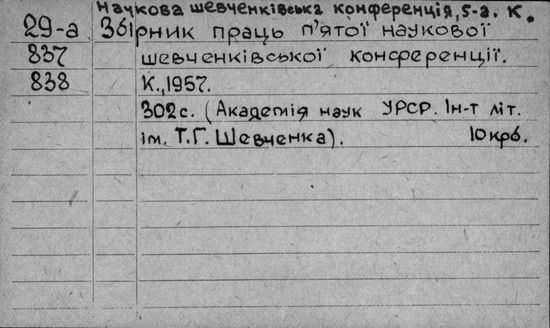 Наукова шевченківська конференція, 5-а. К.
29-а Збірник праць п'ятої наукової
837 шевченківської конференції.
838 К., 1957.
302с. (Академія наук УРСР. Ін-т літ.
ім. Т.Г. Шевченка). 10крб.